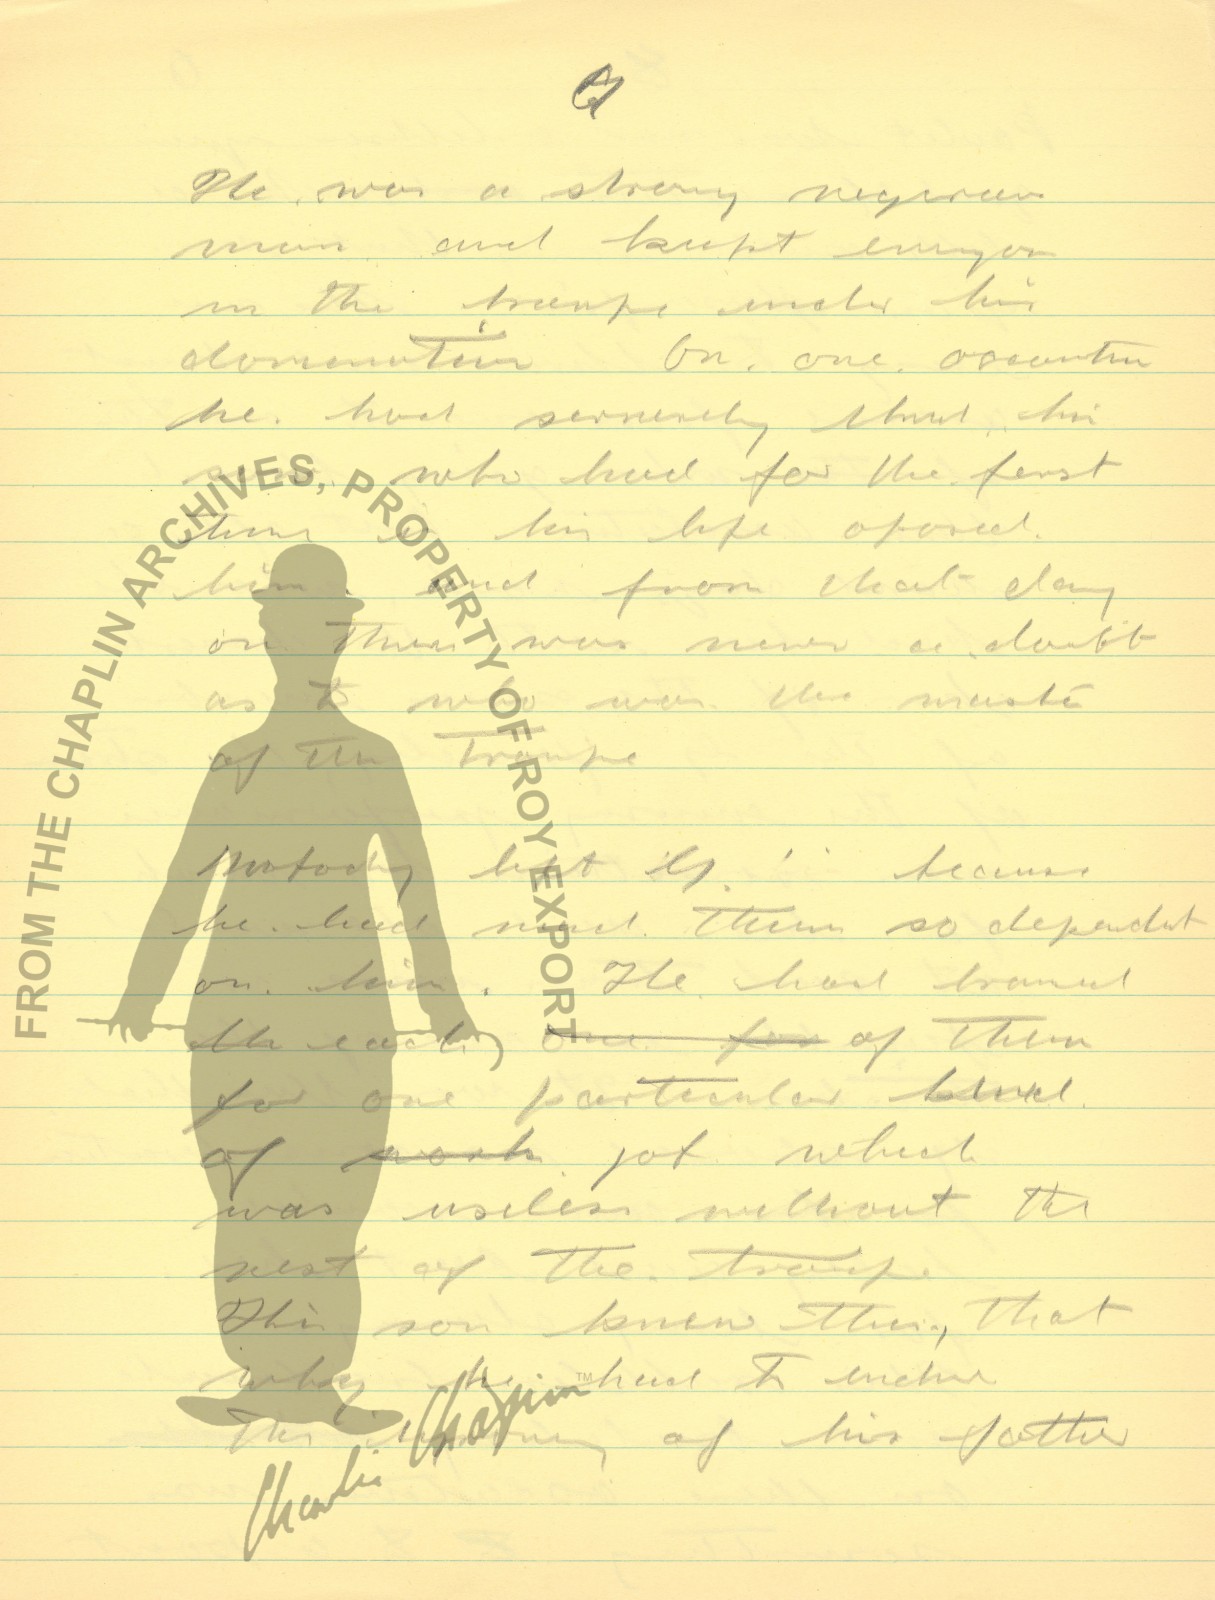 He was a strong vegerous
man and kept everyon
in the troupe under his
domenation On one occation
he had serverely thras his
son who had for the ferst
time in his life oposed
him and from that day
on there was never a doubt
as to who was the master
of the troupe
Nobody left
because
he had mad them so dependent
on him. He had trained
the each one for of them
for one particular kind
of work job which
was useless without the
rest of the troupe
This son knew this, that
why he had to endure
The of his father
FROM THE CHAPLIN ARCHIVES, PROPERTY OF ROY EXPORT
Charlie Chaplin™